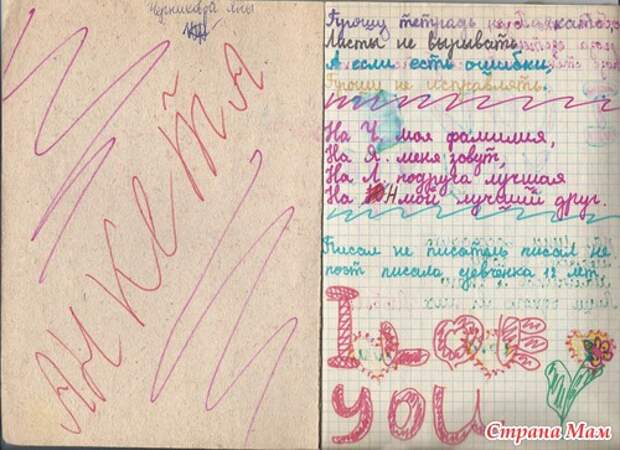 Черникова Яны
АНКЕТА
Прошу тетрадь не пачкать,
Листы не вырывать,
А если есть ошибки,
Прошу не исправлять.
На Ч. моя фамилия,
На Я. меня зовут,
На Л. подруга лучшая
На Н мой лучший друг.
Писал не писатель писал не
поэт писала девчёнка 12 лет.
I LOVE
YOU
Страна Мам